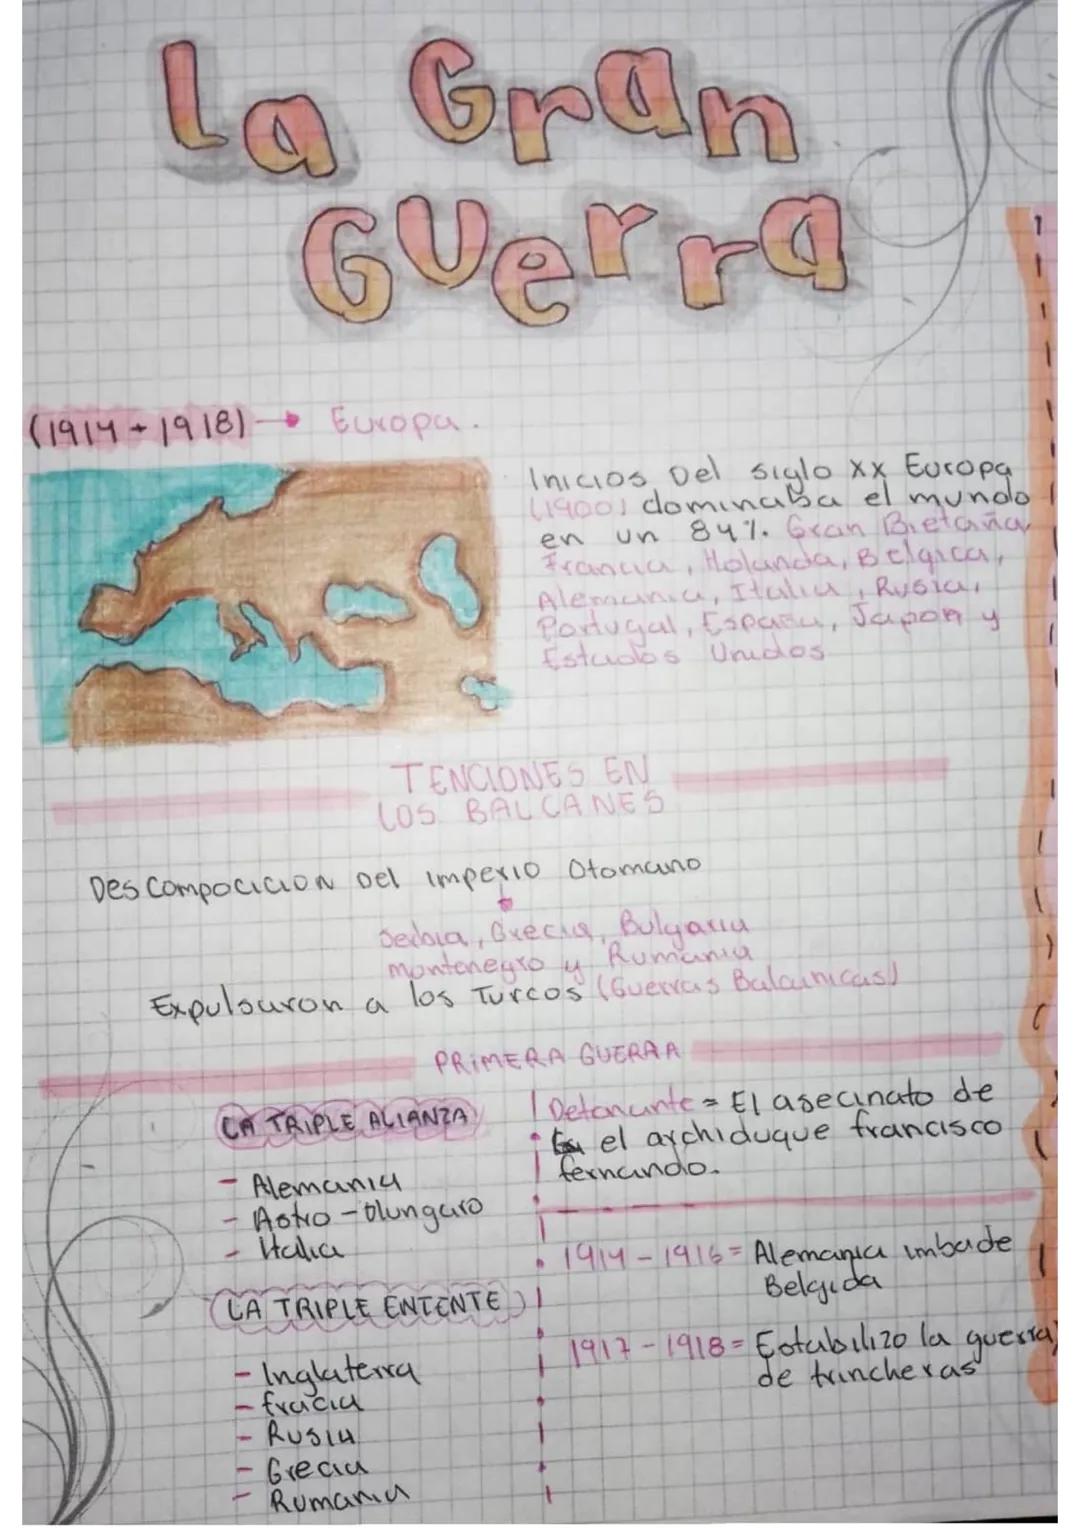 La Gran
Guerra
(1914-1918) → Europa.
Inicios Del siglo XX Europa
(1900) dominaba el mundo
en un 84%. Gran Bretaña,
Francia, Holanda, Belgica,
Alemania, Italia, Rusia,
Portugal, España, Japon y
Estados Unidos
TENCIONES EN
LOS BALCANES
Des Compocicion Del imperio Otomano
Serbia, Grecia, Bulgaria
montenegro y Rumania
Expulsaron a los Turcos (Guerras Balcanicas)
PRIMERA GUERRA
LA TRIPLE ALIANZA
- Alemania
- Astro-Hungaro
- Italia
LA TRIPLE ENTENTE
- Inglaterra
- fracia
- Rusia
- Grecia
- Rumania
Detonante = El asecinato de
el archiduque francisco
fernando.
1914-1916 = Alemania imbade
Belgida
1917-1918 = Estabilizo la guerra
de trincheras